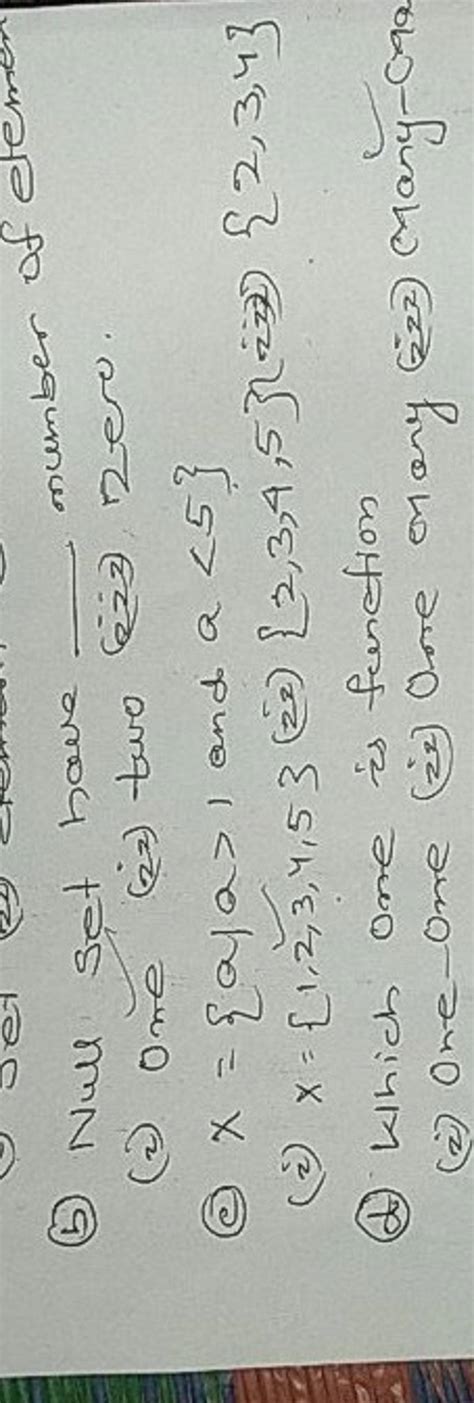 Set
of elemen
(b) Null Set have ___ number
(i) One (ii) two (iii) Zero.
(c) X = {a/a>1 and a<5}
(i) X = {1,2,3,4,5} (ii) {2,3,4,5} (iii) {2,3,4}
(d) Which one is function
(i) One-One (ii) One many (iii) many-one